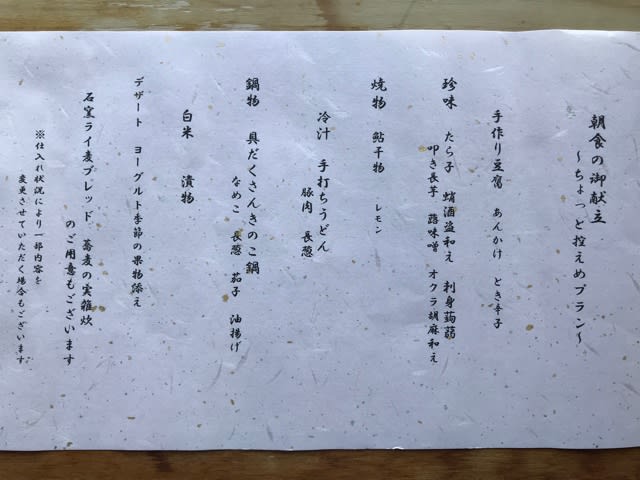 朝食の御献立
～ちょっと控えめプラン～
手作り豆腐 あんかけ とき辛子
珍味 たら子 蛸酒盗和え 刺身蒟蒻
叩き長芋 蕗味噌 オクラ胡麻和え
焼物 鮎干物 レモン
冷汁 手打ちうどん
豚肉 長葱
鍋物 具だくさんきのこ鍋
なめこ 長葱 茄子 油揚げ
白米 漬物
デザート ヨーグルト季節の果物添え
石窯ライ麦ブレッド 蕎麦の実雑炊
のご用意もございます
※仕入れ状況により一部内容を
変更させていただく場合もございます